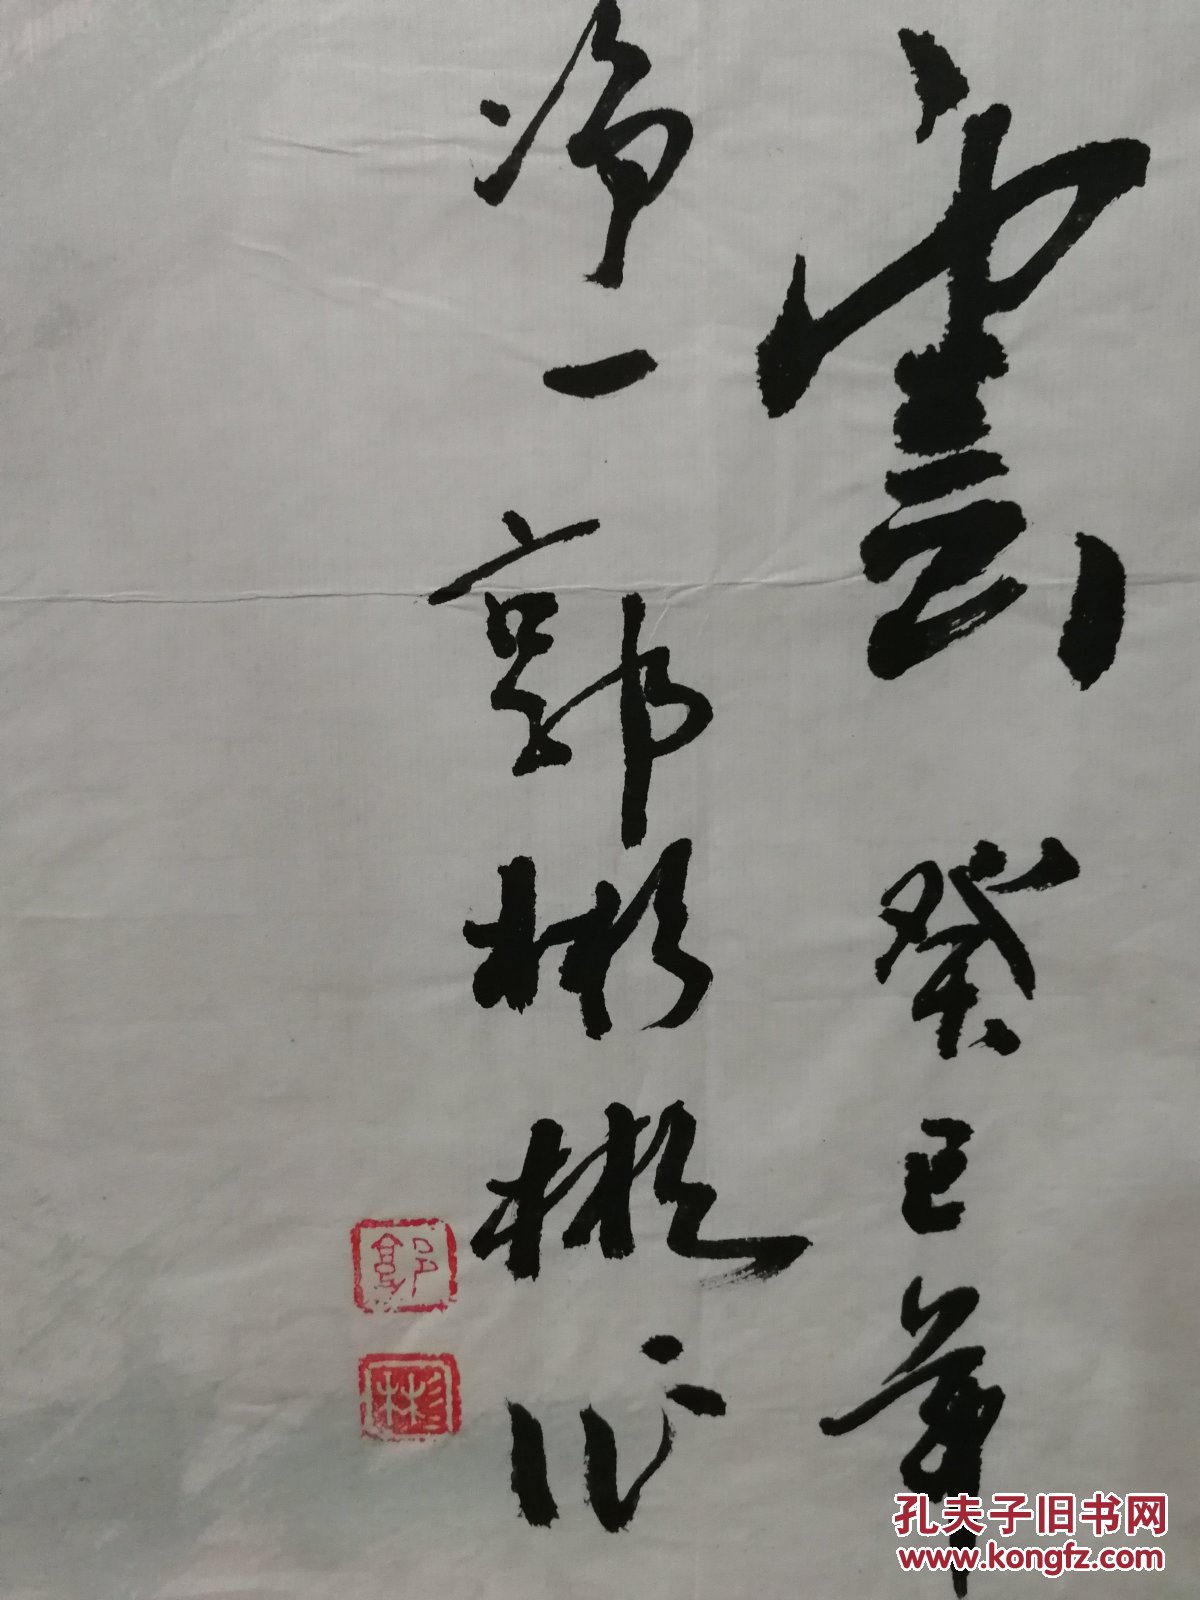 雲癸巳年
郭彬彬作
郭
彬
孔夫子旧书网
www.kongfz.com